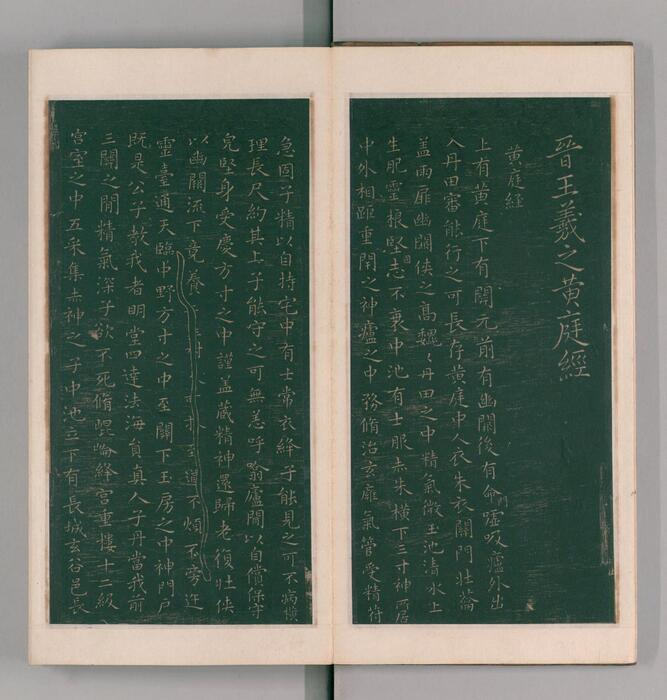 晉王羲之黄庭經
黄庭經
上有黄庭下有關元前有幽闕後有命噓吸廬外出
入丹田審能行之可長存黄庭中人衣朱衣關門壯蘥
盖兩扉幽闕俠之高魏〻丹田之中精氣微玉池清水上
生肥靈根堅志不衰中池有士服赤朱橫下三寸神所居
中外相距重閇之神廬之中務脩治玄廱氣管受精符
急固子精以自持宅中有士常衣絳子能見之可不病橫
理長尺約其上子能守之可無恙呼噏廬閒以自償保守
皃堅身受慶方寸之中謹盖藏精神還歸老復壯俠
以幽闕流下竟養 至道不煩不旁迕
靈臺通天臨中野方寸之中至關下玉房之中神門戶
既是公子教我者明堂四達法海員真人子丹當我前
三關之閒精氣深子欲不死脩崐崘絳宮重樓十二級
宮室之中五采集赤神之子中池立下有長城玄谷邑長